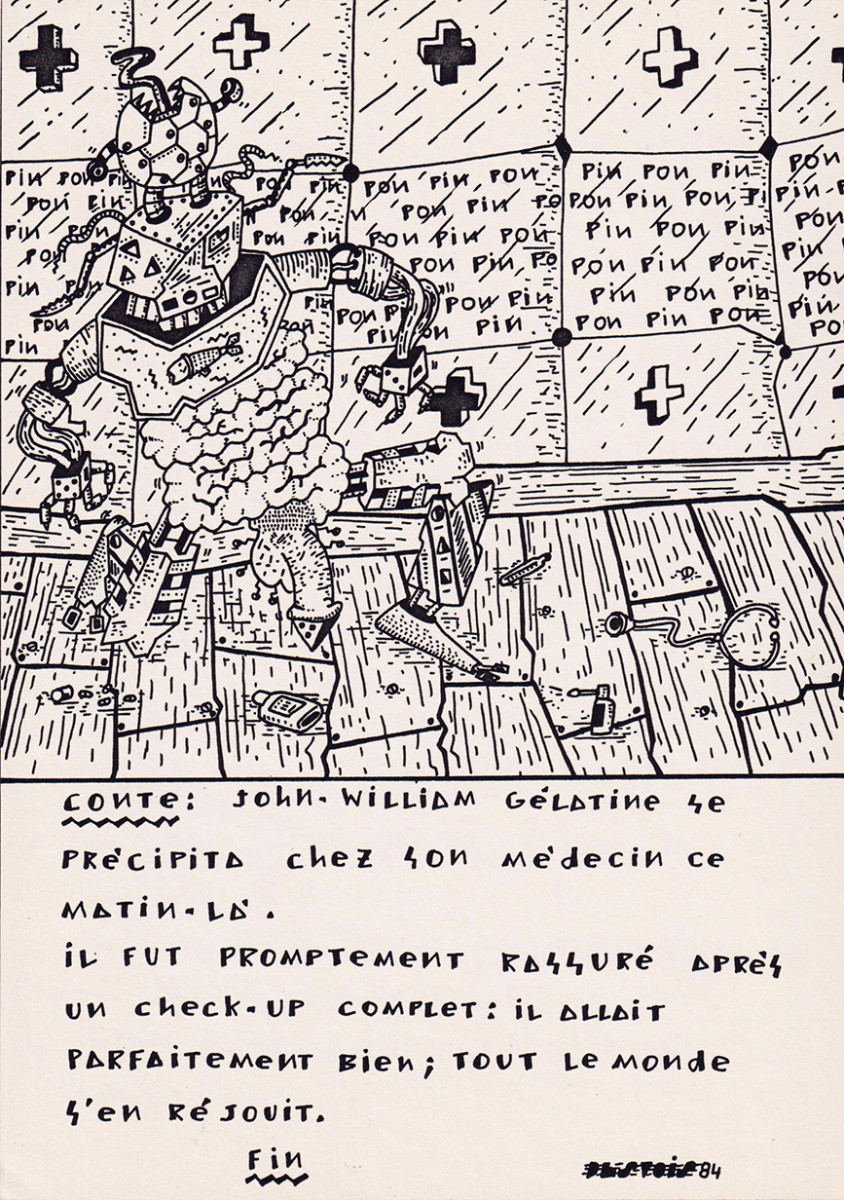 PIN PON PIN PON PIN PON PIN PON PIN PON PIN PON
PON PIN PON PON PIN PO PON PIN PON PI PIN-P
PIN PON PIN PON PIN PON PIN PON PIN PON
PON PON PIN PO PON PIN PON PIN
PIN PIN PON PIN PIN PON PIN PON
PON PON PIN PON PIN PON PIN
PIN PIN PO
CONTE: JOHN-WILLIAM GÉLATINE SE
PRÉCIPITA CHEZ SON MÉDECIN CE
MATIN-LÀ.
IL FUT PROMPTEMENT RASSURÉ APRÈS
UN CHECK-UP COMPLET: IL ALLAIT
PARFAITEMENT BIEN; TOUT LE MONDE
S'EN RÉJOUIT.
FIN
84